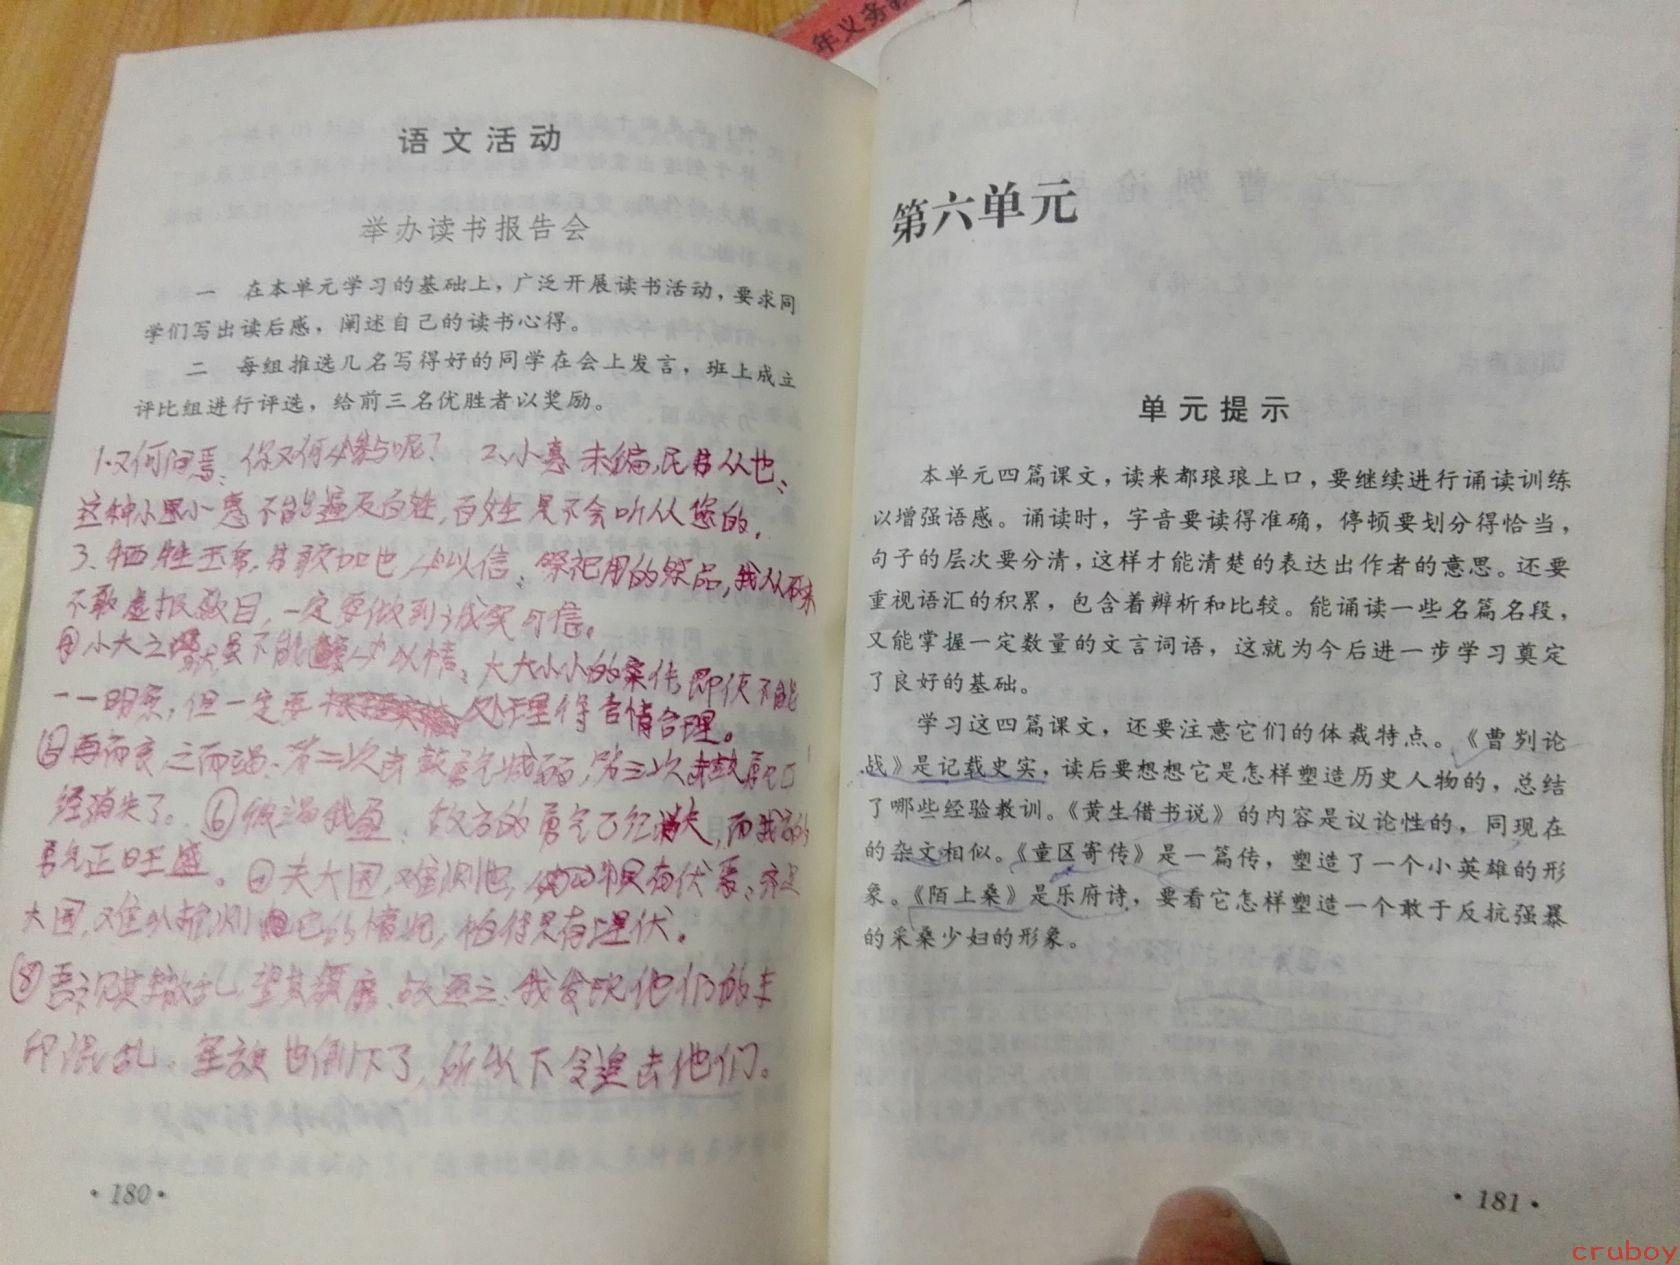 年义务教
语文活动
举办读书报告会
一 在本单元学习的基础上，广泛开展读书活动，要求同
学们写出读后感，阐述自己的读书心得。
二 每组推选几名写得好的同学在会上发言，班上成立
评比组进行评选，给前三名优胜者以奖励。
1.又何间焉：你又何必参与呢？ 2、小惠未徧，民弗从也：
这种小恩小惠不能遍及百姓，百姓是不会听从您的。
3、牺牲玉帛，弗敢加也，必以信：祭祀用的祭品，我从来
不敢虚报数目，一定要做到诚实可信。
④小大之狱虽不能 必以情：大大小小的案件，即使不能
一一明察，但一定要 处理得合情合理。
⑤再而衰三而竭：第二次击鼓勇气减弱，第三次击鼓勇气已
经消失了。⑥彼竭我盈：敌方的勇气已经消失，而我方的
勇气正旺盛。⑦夫大国，难测也，惧有伏焉：齐是
大国，难以推测 它的情况，怕得是有埋伏。
⑧吾视其辙乱，望其旗靡，故逐之：我发现他们的车
印混乱，军旗也倒下了，所以下令追击他们。
·180·
第六单元
单元提示
本单元四篇课文，读来都琅琅上口，要继续进行诵读训练
以增强语感。诵读时，字音要读得准确，停顿要划分得恰当，
句子的层次要分清，这样才能清楚的表达出作者的意思。还要
重视语汇的积累，包含着辨析和比较。能诵读一些名篇名段，
又能掌握一定数量的文言词语，这就为今后进一步学习奠定
了良好的基础。
学习这四篇课文，还要注意它们的体裁特点。《曹刿论
战》是记载史实，读后要想想它是怎样塑造历史人物的，总结
了哪些经验教训。《黄生借书说》的内容是议论性的，同现在
的杂文相似。《童区寄传》是一篇传，塑造了一个小英雄的形
象。《陌上桑》是乐府诗，要看它怎样塑造一个敢于反抗强暴
的采桑少妇的形象。
·181·
cruboy